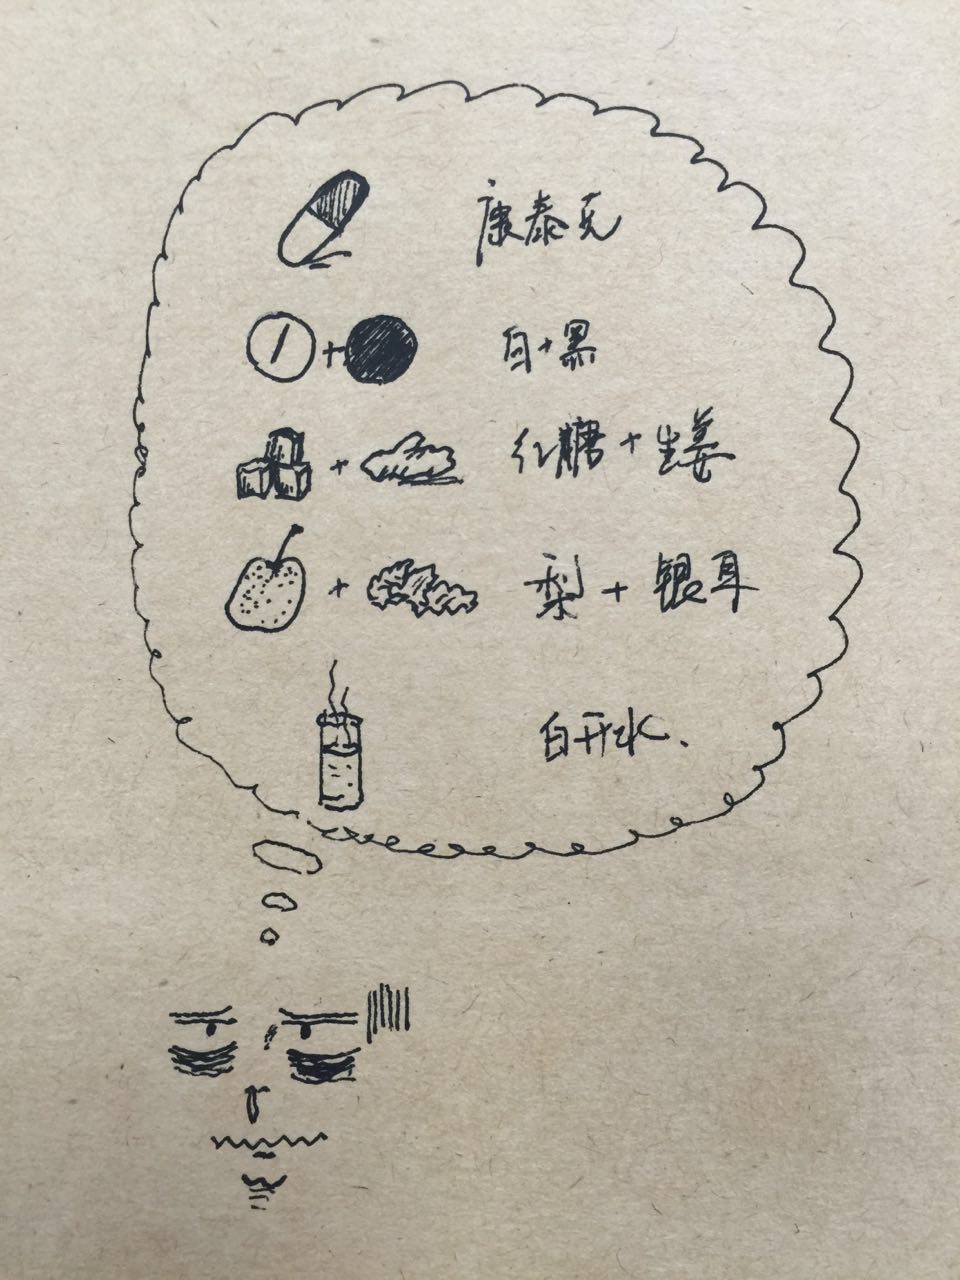 康泰克
白+黑
红糖+生姜
梨+银耳
白开水.